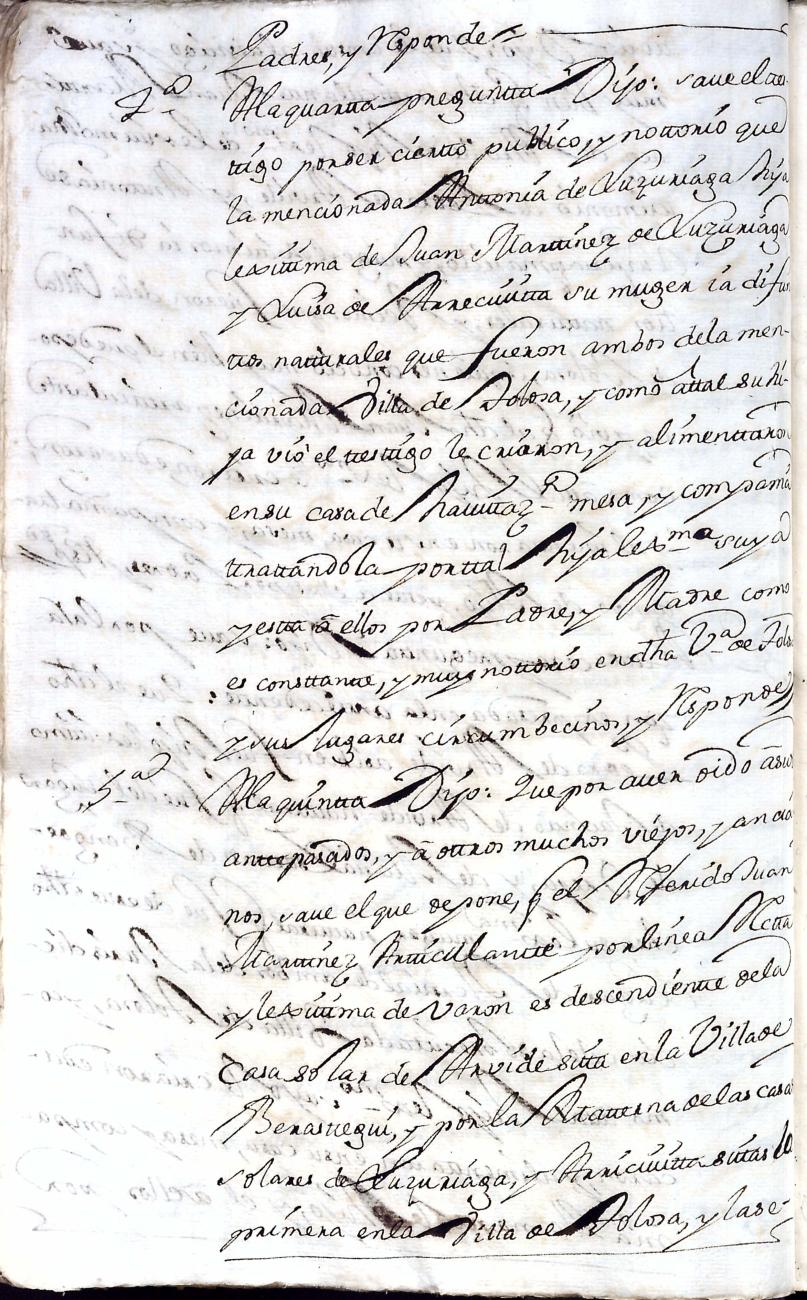 Padres, y Responde
4ª Alaquartta pregunttta Dijo: save el tes-
tigo por ser ciertto publico, y nottorio que
la mencionada Anttonia de Luzuriaga hija
lexitima de Juan Martinez de Luzuriaga
y Luisa de Arrecivitta su muger ia difun
ttos natturales que fueron ambos dela men-
cionada Villa de Tolosa, y como âttal su hi-
ja vió el testtigo le criaron, y alimenttaron
en su casa de havittazon mesa, y compañia
ttrattandola por ttal hija lexma suya
y estta â ellos por Padre, y Madre como
es consttantte, y muy nottorio en dha Vª de Tolosa
y sus lugares circumbecinos, y Responde
5ª Alaquintta Dijo: Que por aver oido â sus
anttepasados, y â ottros muchos viejos, y ancia
nos, save el que depone, q el Referido Juan
Martinez Artticulantte por linea Rectta
y lexittima de varon es descendientte dela
Casa solar de Arvide sitta en la Villa de
Berasttegui, y por la Matterna de las casas
solares de Luzuriaga, y Arricivitta sitas la
primera en la Villa de Tolosa, y la se-